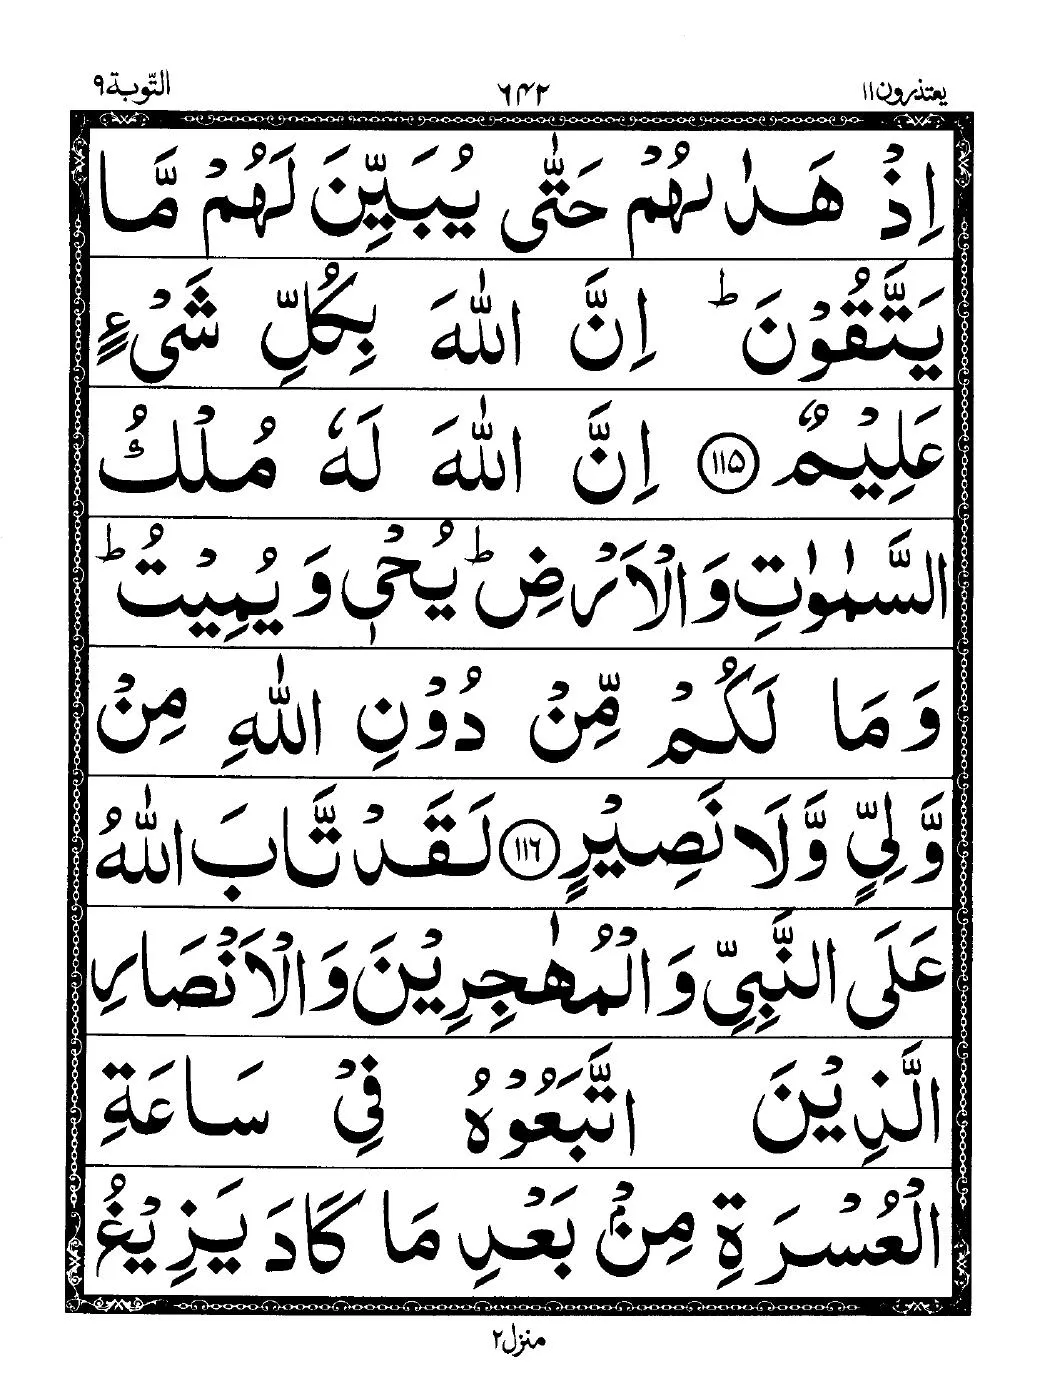 یعتذرون ۱۱ ۶۴۲ التّوبة ۹
اِذْ هَدٰىهُمْ حَتّٰى يُبَيِّنَ لَهُمْ مَّا
يَتَّقُوْنَ ؕ اِنَّ اللّٰهَ بِكُلِّ شَىْءٍ
عَلِيْمٌ ۱۱۵ اِنَّ اللّٰهَ لَهٗ مُلْكُ
السَّمٰوٰتِ وَالْاَرْضِ ؕ يُحْىٖ وَيُمِيْتُ ؕ
وَمَا لَكُمْ مِّنْ دُوْنِ اللّٰهِ مِنْ
وَّلِىٍّ وَّلَا نَصِيْرٍ ۱۱۶ لَقَدْ تَّابَ اللّٰهُ
عَلَى النَّبِىِّ وَالْمُهٰجِرِيْنَ وَالْاَنْصَارِ
الَّذِيْنَ اتَّبَعُوْهُ فِىْ سَاعَةِ
الْعُسْرَةِ مِنْۢ بَعْدِ مَا كَادَ يَزِيْغُ
منزل ۲